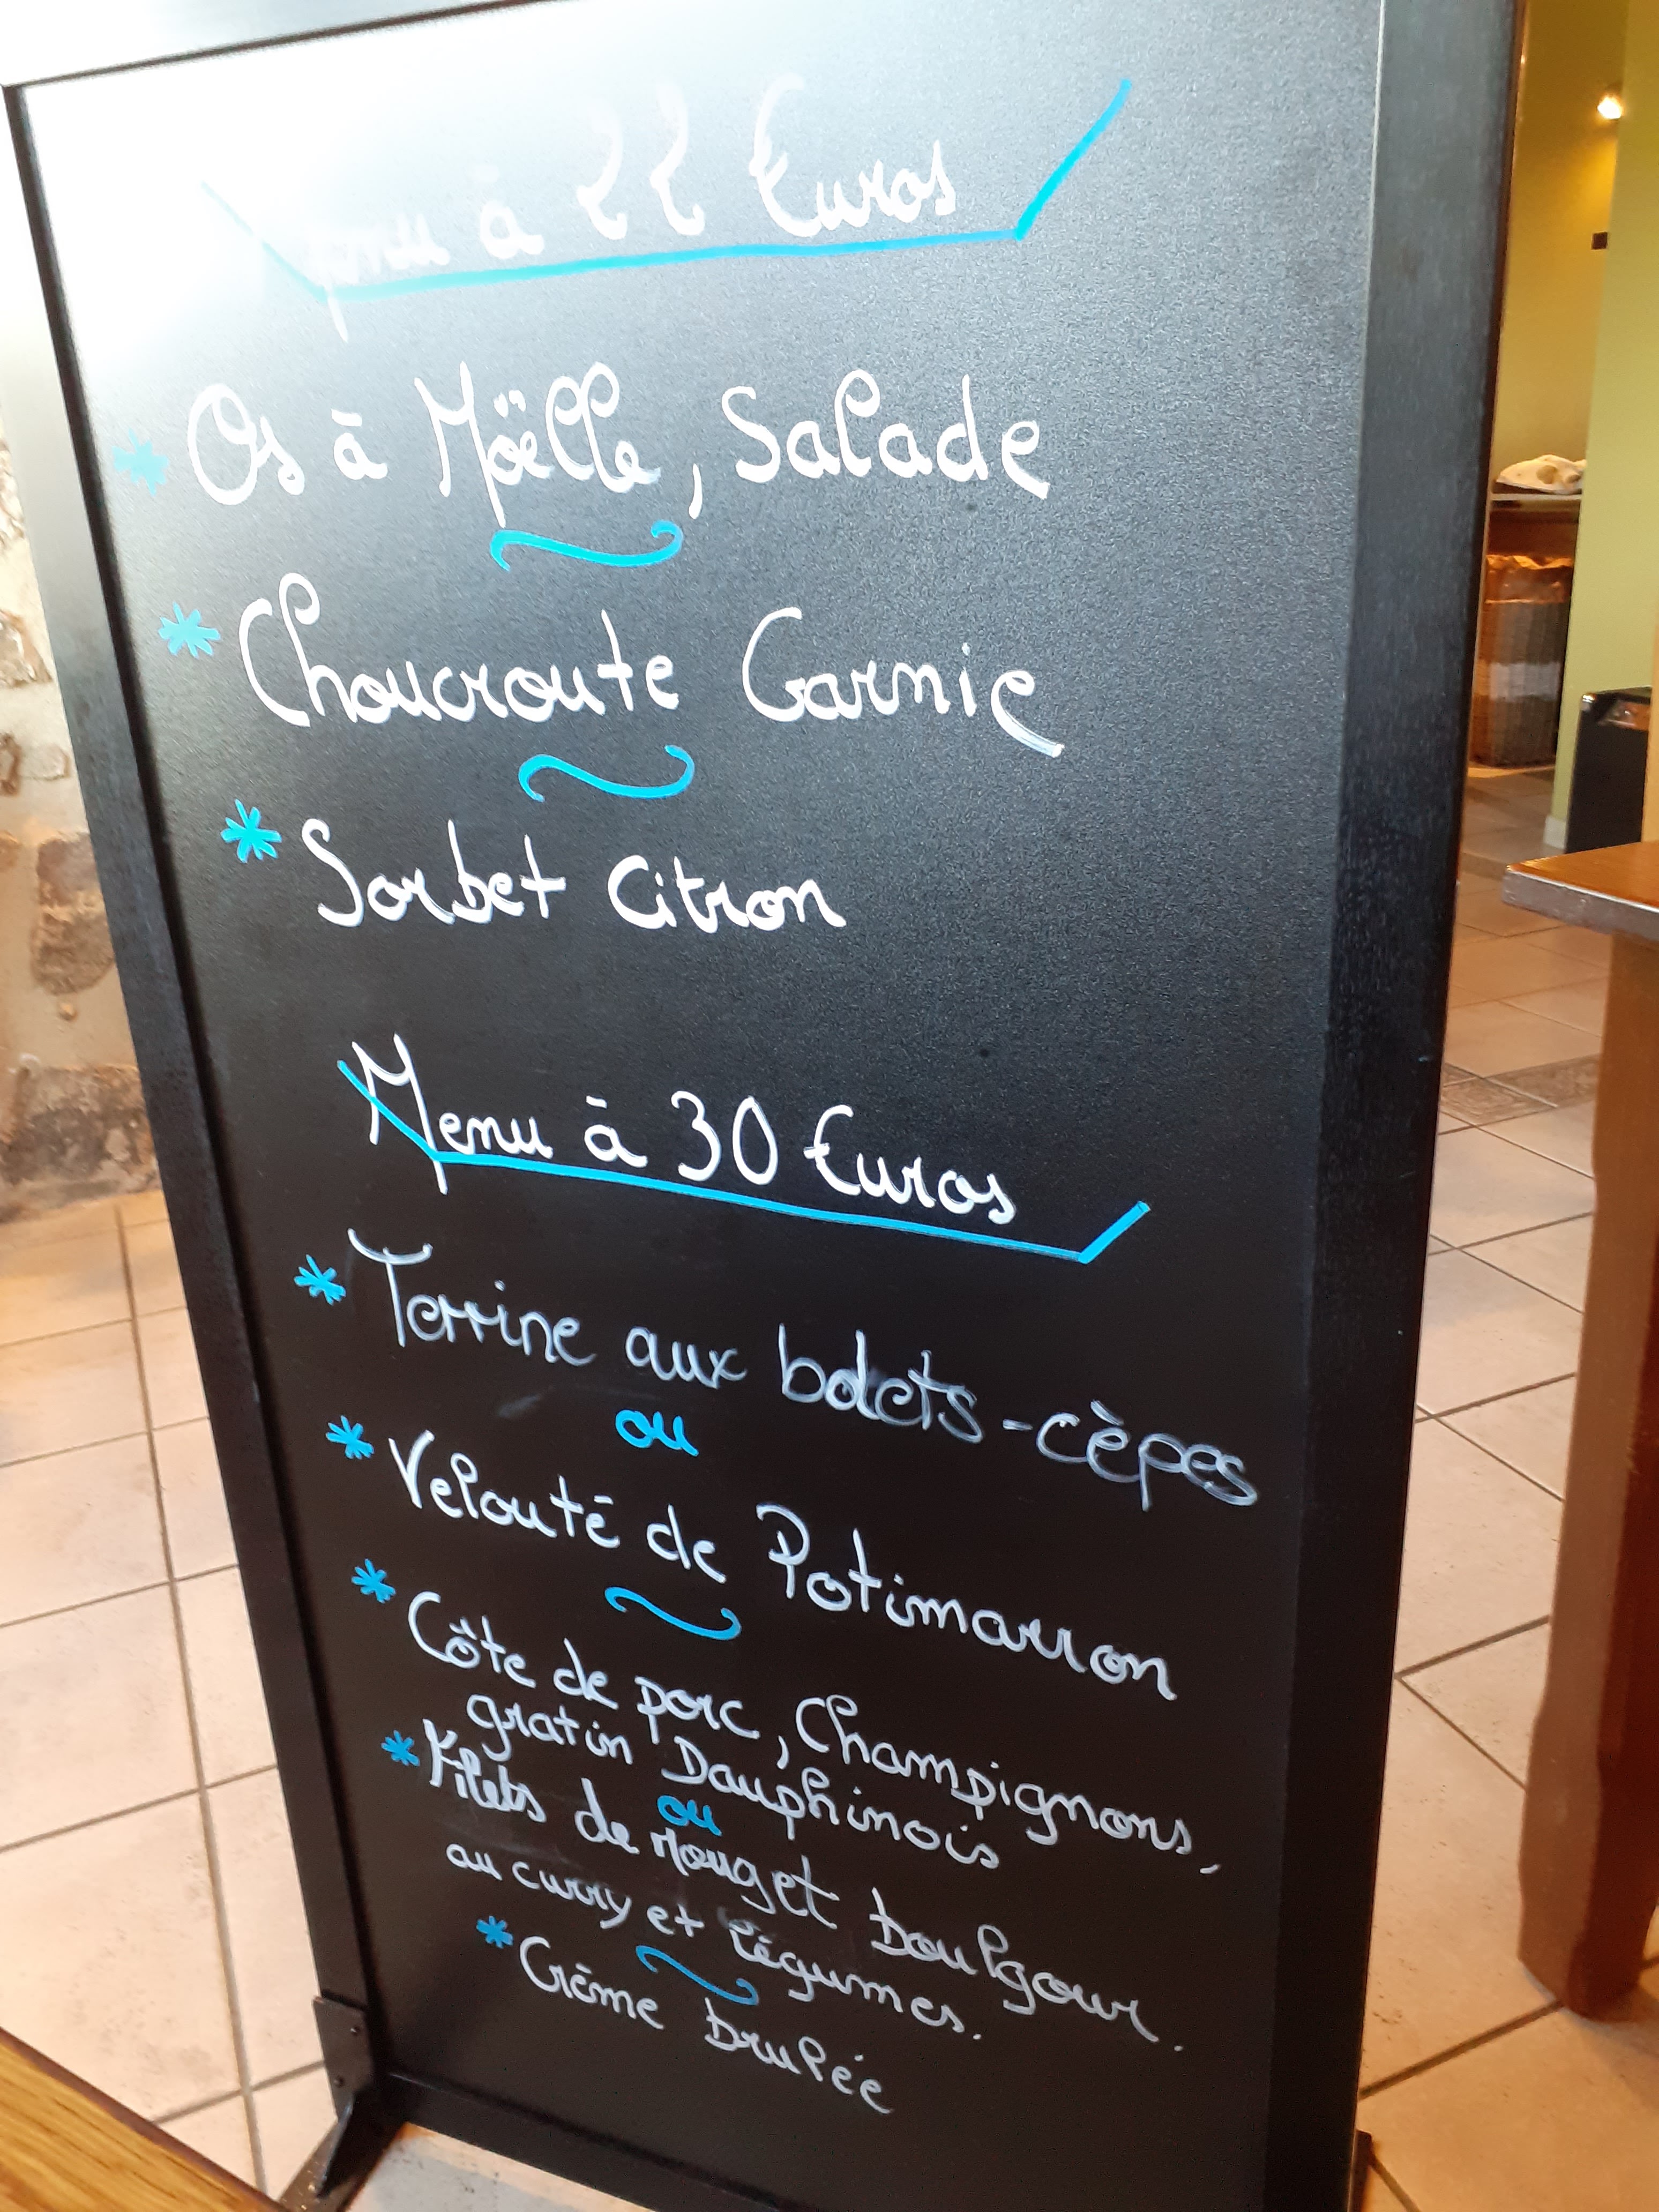 Menu à 22 Euros
* Os à Moëlle, Salade
* Choucroute Garnie
* Sorbet Citron
Menu à 30 Euros
* Terrine aux bolets-cèpes
ou
* Velouté de Potimarron
* Côte de porc, Champignons,
gratin Dauphinois
ou
* Filets de Rouget Boulgour.
au curry et légumes.
* Crème Brulée